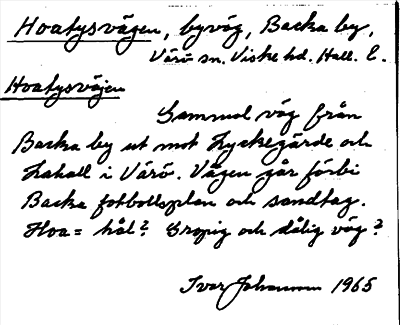 Hoatysvägen, byväg, Backa by,
Värö sn. Viske hd. Hall. l.
Hoatysväjen
Gammal väg från
Backa by ut mot Lyckegärde och
Lahall i Värö. Vägen går förbi
Backa fotbollsplan och sandtag.
Hoa = hål? Gropig och dålig väg?
Ivar Johansson 1965